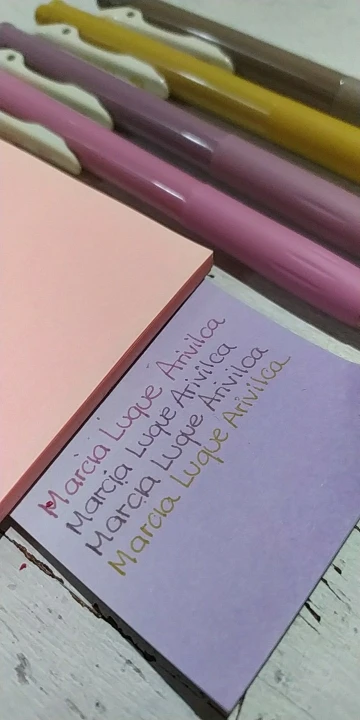 Marcia Luque Arivilca
Marcia Luque Arivilca
Marcia Luque Arivilca
Marcia Luque Arivilca